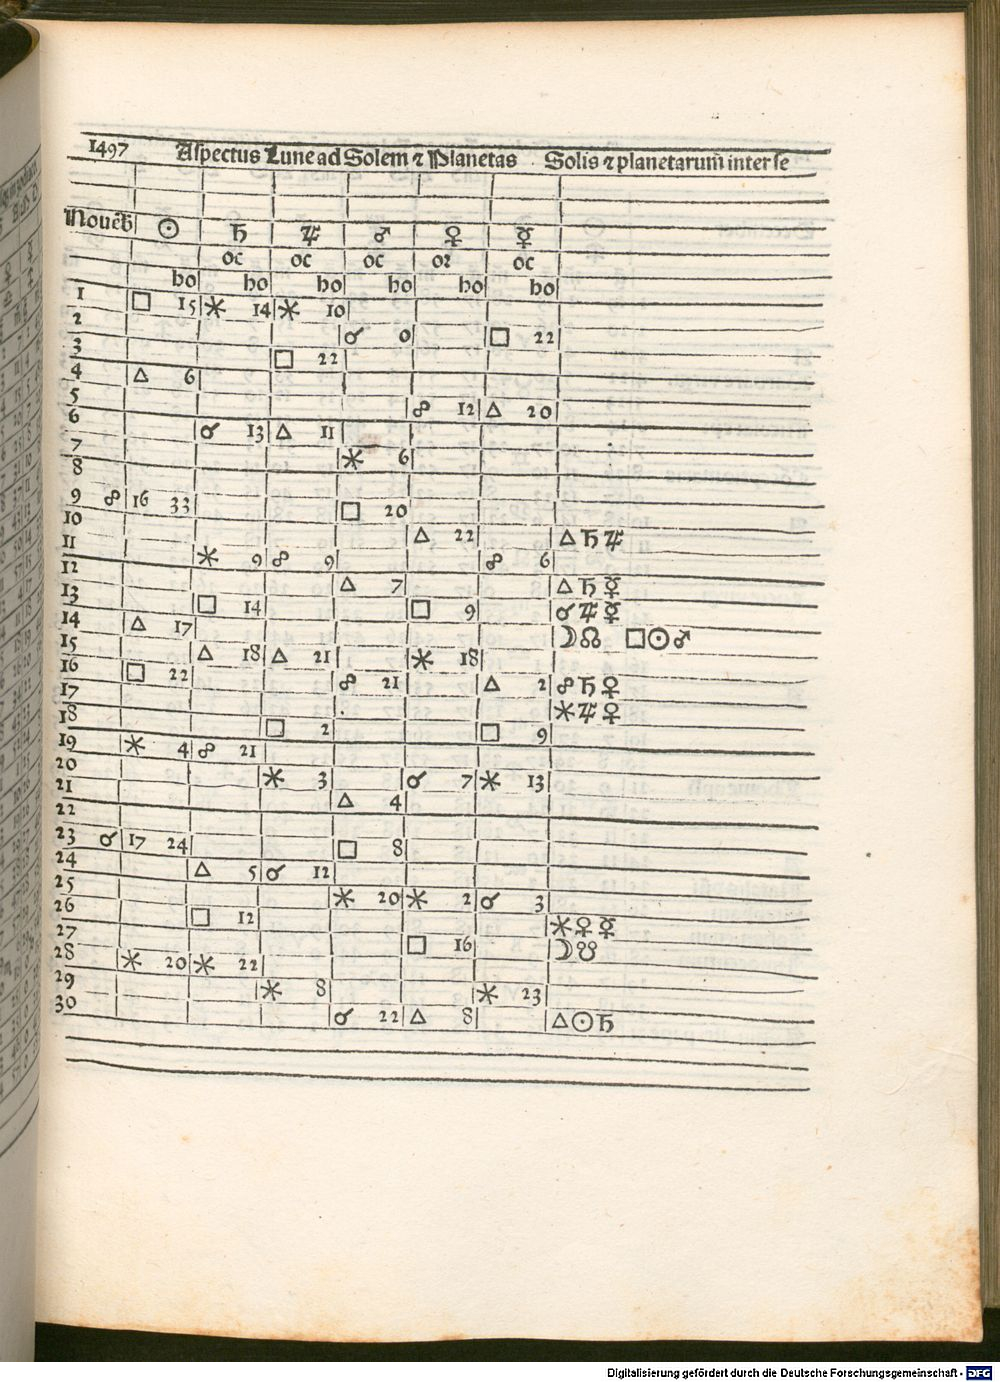 1497 Aspectus Lune ad Solem ⁊ Planetas Solis ⁊ planetarum̄ inter se
Nouēb ☉ ♄ ♃ ♂ ♀ ☿
oc oc oc oꝛ oc
ho ho ho ho ho ho
1 □ 15 ⚹ 14 ⚹ 10
2 ☌ 0 □ 22
3 □ 22
4 △ 6
5 ☍ 12 △ 20
6 ☌ 13 △ 11
7 ⚹ 6
8
9 ☍ 16 33 □ 20
10 △ 22 △ ♄ ♃
11 ⚹ 9 ☍ 9 ☍ 6
12 △ 7 △ ♄ ☿
13 □ 14 □ 9 ☌ ♃ ☿
14 △ 17 ☽ ☊ □ ☉ ♂
15 △ 18 △ 21 ⚹ 18
16 □ 22 ☍ 21 △ 2 ☍ ♄ ♀
17 ⚹ ♃ ♀
18 □ 2 □ 9
19 ⚹ 4 ☍ 21
20 ⚹ 3 ☌ 7 ⚹ 13
21 △ 4
22
23 ☌ 17 24 □ 8
24 △ 5 ☌ 12
25 ⚹ 20 ⚹ 2 ☌ 3
26 □ 12 ⚹ ♀ ☿
27 □ 16 ☽ ☋
28 ⚹ 20 ⚹ 22
29 ⚹ 8 ⚹ 23
30 ☌ 22 △ 8 △ ☉ ♄
Digitalisierung gefördert durch die Deutsche Forschungsgemeinschaft - DFG